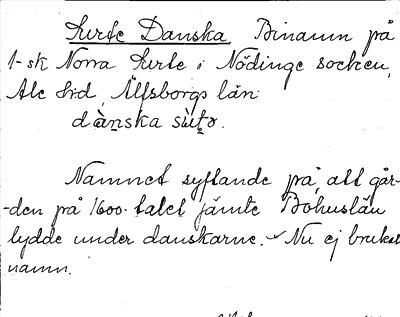 Surte Danska Binamn på
1-sk Norra Surte i Nödinge socken,
Ale hrd, Älfsborgs län
dànska sùtə.
Namnet syftande på, att går-
-den på 1600-talet jämte Bohuslän
lydde under danskarne. Nu ej brukat
namn.